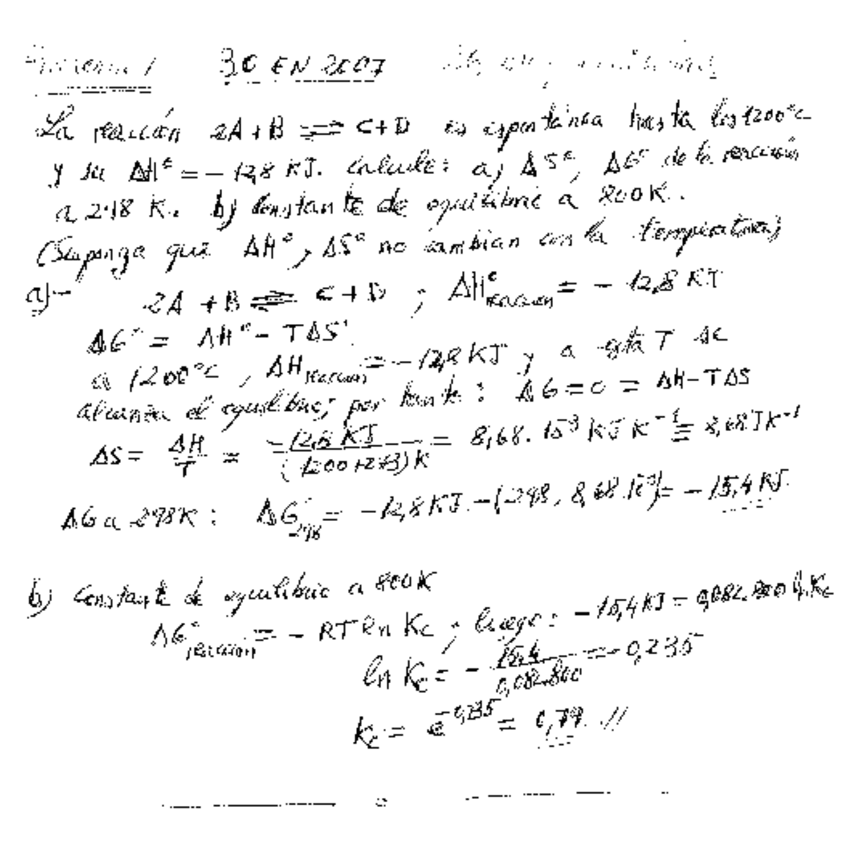 30 EN 2007
La reacción 2A + B ⇌ C + D es espontánea hasta los 1200°C
y su ΔH° = -12,8 KJ. Calcule: a) ΔS°, ΔG° de la reacción
a 298 K. b) Constante de equilibrio a 800K.
(Suponga que ΔH°, ΔS° no cambian con la temperatura)
a)- 2A + B ⇌ C + D ; ΔH°reaccion = - 12,8 KJ
ΔG° = ΔH° - TΔS°
a 1200°C, ΔHreaccion = -12,8 KJ y a esta T se
alcanza el equilibrio; por tanto: ΔG = 0 = ΔH - TΔS
ΔS = ΔH/T = -12,8 KJ/(1200+273)K = 8,68.10⁻³ KJ K⁻¹ = 8,68 J K⁻¹
ΔG a 298K: ΔG°298 = -12,8 KJ - (298 . 8,68.10⁻³) = - 15,4 KJ.
b) Constante de equilibrio a 800K
ΔG°reaccion = - RT ln Kc ; luego: - 15,4 KJ = 0,082.800 ln Kc
ln Kc = - 15,4/0,082.800 = - 0,235
Kc = e^-0,235 = 0,79 //